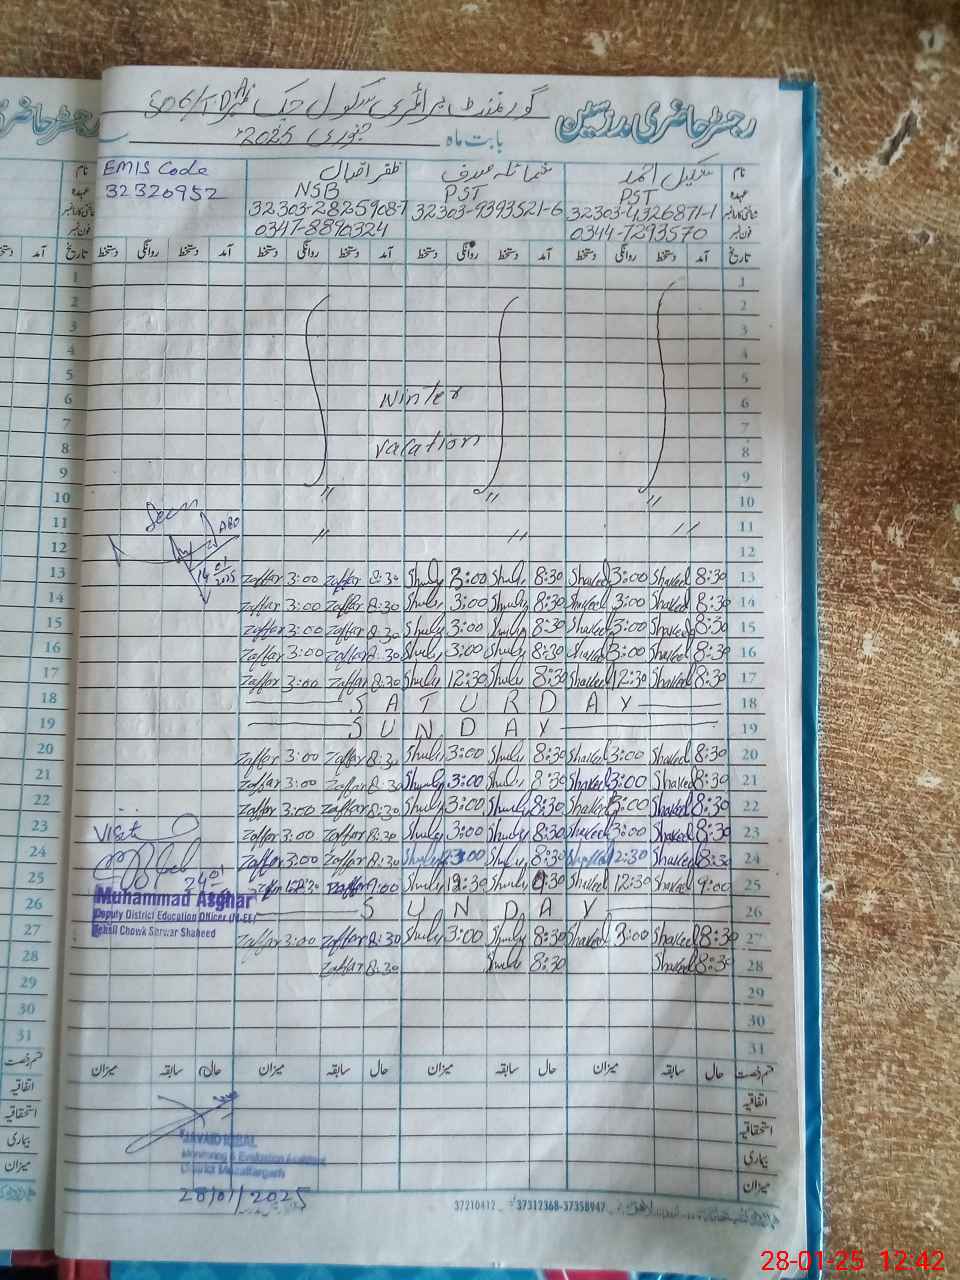 رجسٹر حاضری مدرسین گورنمنٹ پرائمری سکول چک نمبر 506/TDA
بابت ماہ جنوری 2025ء
نام شکیل احمد شمائلہ صدف ظفر اقبال EMIS Code
عہدہ PST PST NSB 32320952
شناختی کارڈ نمبر 32303-4326871-1 32303-9393521-6 32303-2825908-7
فون نمبر 0344-7293570 0347-8890324
تاریخ آمد دستخط روانگی دستخط آمد دستخط روانگی دستخط آمد دستخط روانگی دستخط آمد دستخط روانگی دستخط
1
2
3
4
5
6 Winter
7
8 vacation
9
10 " " "
11 " " "
12
ABO
14/01/2025
13 Zaffar 3:00 Zaffar 8:30 3:00 8:30 Shakeel 3:00 Shakeel 8:30
14 Zaffar 3:00 Zaffar 8:30 3:00 8:30 Shakeel 3:00 Shakeel 8:30
15 Zaffar 3:00 Zaffar 8:30 3:00 8:30 Shakeel 3:00 Shakeel 8:30
16 Zaffar 3:00 Zaffar 8:30 3:00 8:30 Shakeel 3:00 Shakeel 8:30
17 Zaffar 3:00 Zaffar 8:30 12:30 8:30 Shakeel 12:30 Shakeel 8:30
18 SATURDAY
19 SUNDAY
20 Zaffar 3:00 Zaffar 8:30 3:00 8:30 Shakeel 3:00 Shakeel 8:30
21 Zaffar 3:00 Zaffar 8:30 3:00 8:30 Shakeel 3:00 Shakeel 8:30
22 Zaffar 3:00 Zaffar 8:30 3:00 8:30 Shakeel 3:00 Shakeel 8:30
23 Zaffar 3:00 Zaffar 8:30 3:00 8:30 Shakeel 3:00 Shakeel 8:30
24 Zaffar 3:00 Zaffar 8:30 3:00 8:30 Shakeel 12:30 Shakeel 8:30
25 Zaffar 9:00 12:30 9:30 Shakeel 12:30 Shakeel 9:00
26 SUNDAY
27 Zaffar 3:00 Zaffar 8:30 3:00 8:30 Shakeel 3:00 Shakeel 8:30
28 Zaffar 8:30 8:30 Shakeel 8:30
29
30
31
Visit
24/01
Muhammad Asghar
Deputy District Education Officer (M-EE)
Tehsil Chowk Serwar Shaheed
قسم رخصت حال سابقہ میزان حال سابقہ میزان حال سابقہ میزان حال سابقہ میزان
اتفاقیہ
استحقاقیہ
بیماری
میزان
JAVAID IQBAL
Monitoring & Evaluation Assistant
District Muzaffargarh
28/01/2025
37210412 - 37312368-37358947
28-01-25 12:42